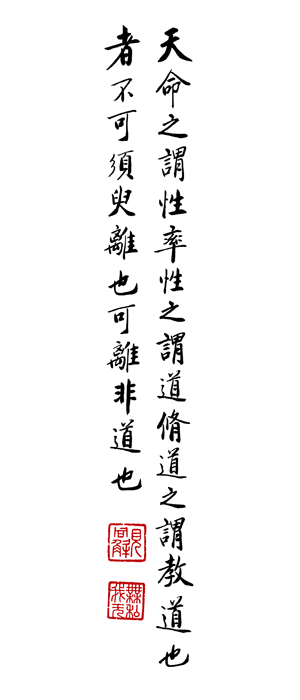 天命之謂性率性之謂道脩道之謂教道也
者不可須臾離也可離非道也